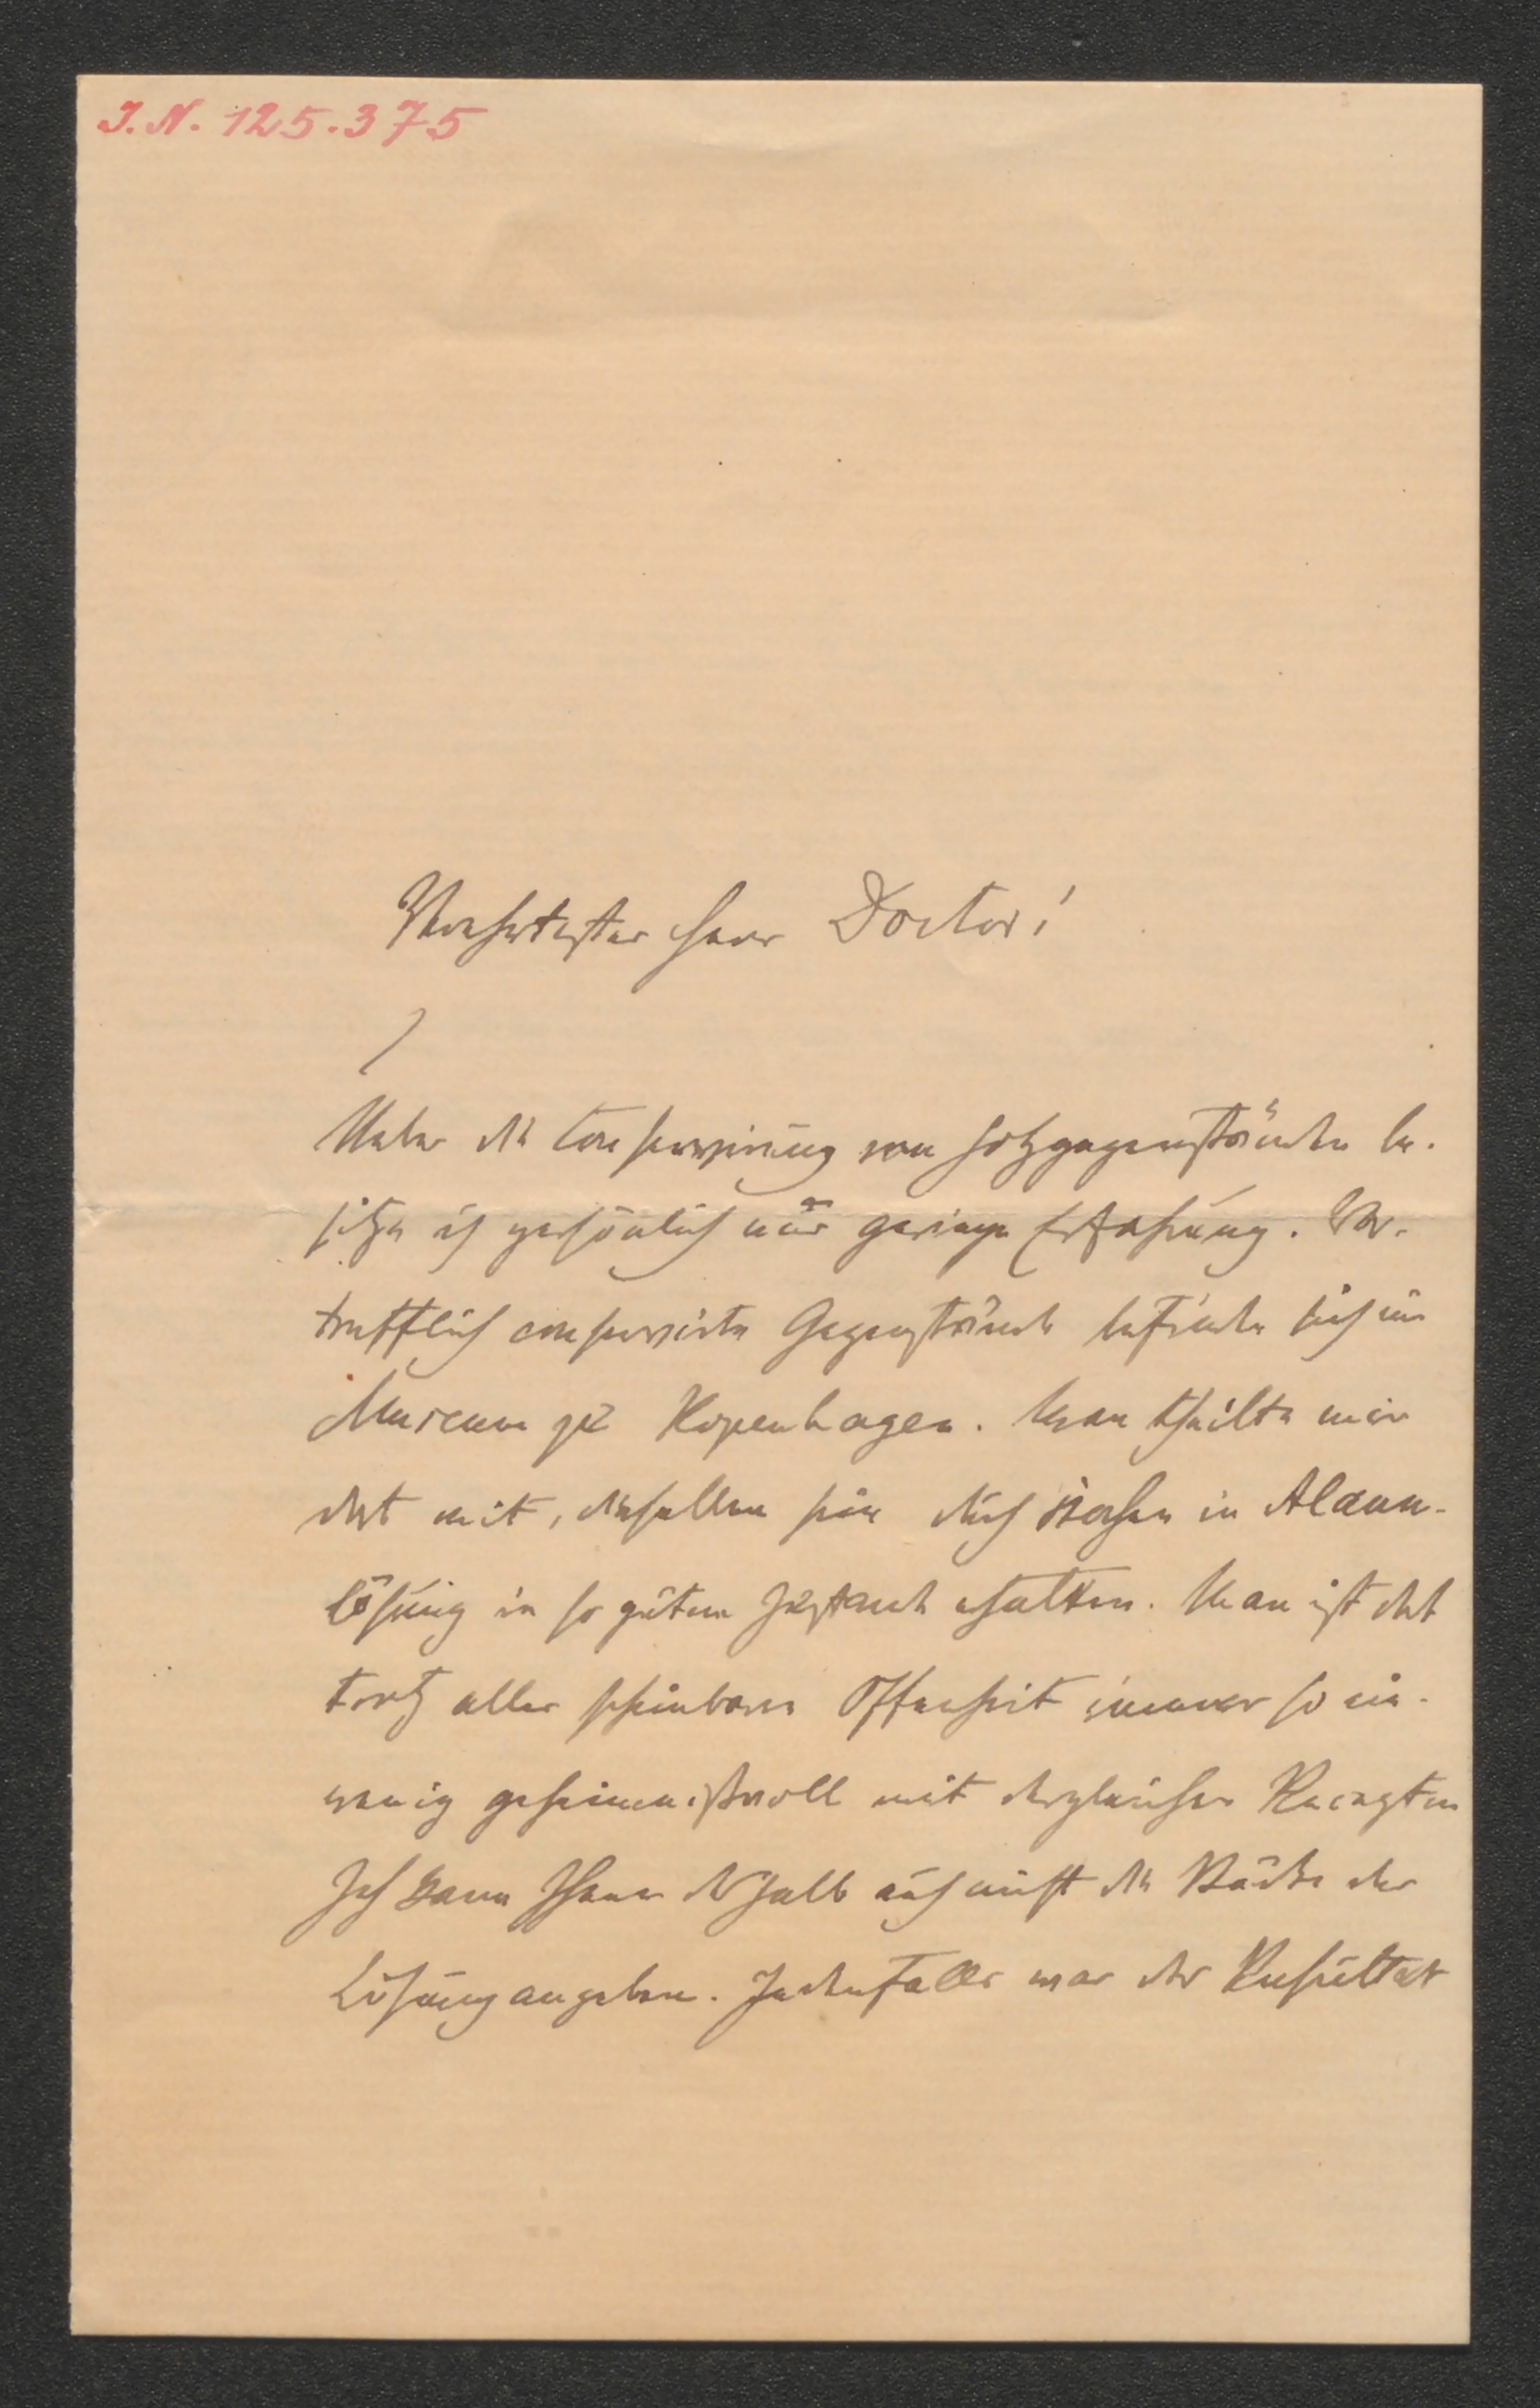 I. N. 125.375
Verehrtester Herr Doctor!
Ueber die Conservirung von Holzgegenständen be-
sitze ich persönlich nur geringe Erfahrung. Vor-
trefflich conservirte Gegenstände befinden sich im
Museum zu Kopenhagen. Man theilte mir
dort mit, dieselben seien durch Kochen in Alaun-
lösung in so gutem Zustande erhalten. Man ist dort
trotz aller scheinbaren Offenheit immer so ein
wenig geheimnißvoll mit dergleichen Recepten
Ich kann Ihnen deshalb auch nicht die Stärke der
Lösung angeben. Jedenfalls war das Resultat